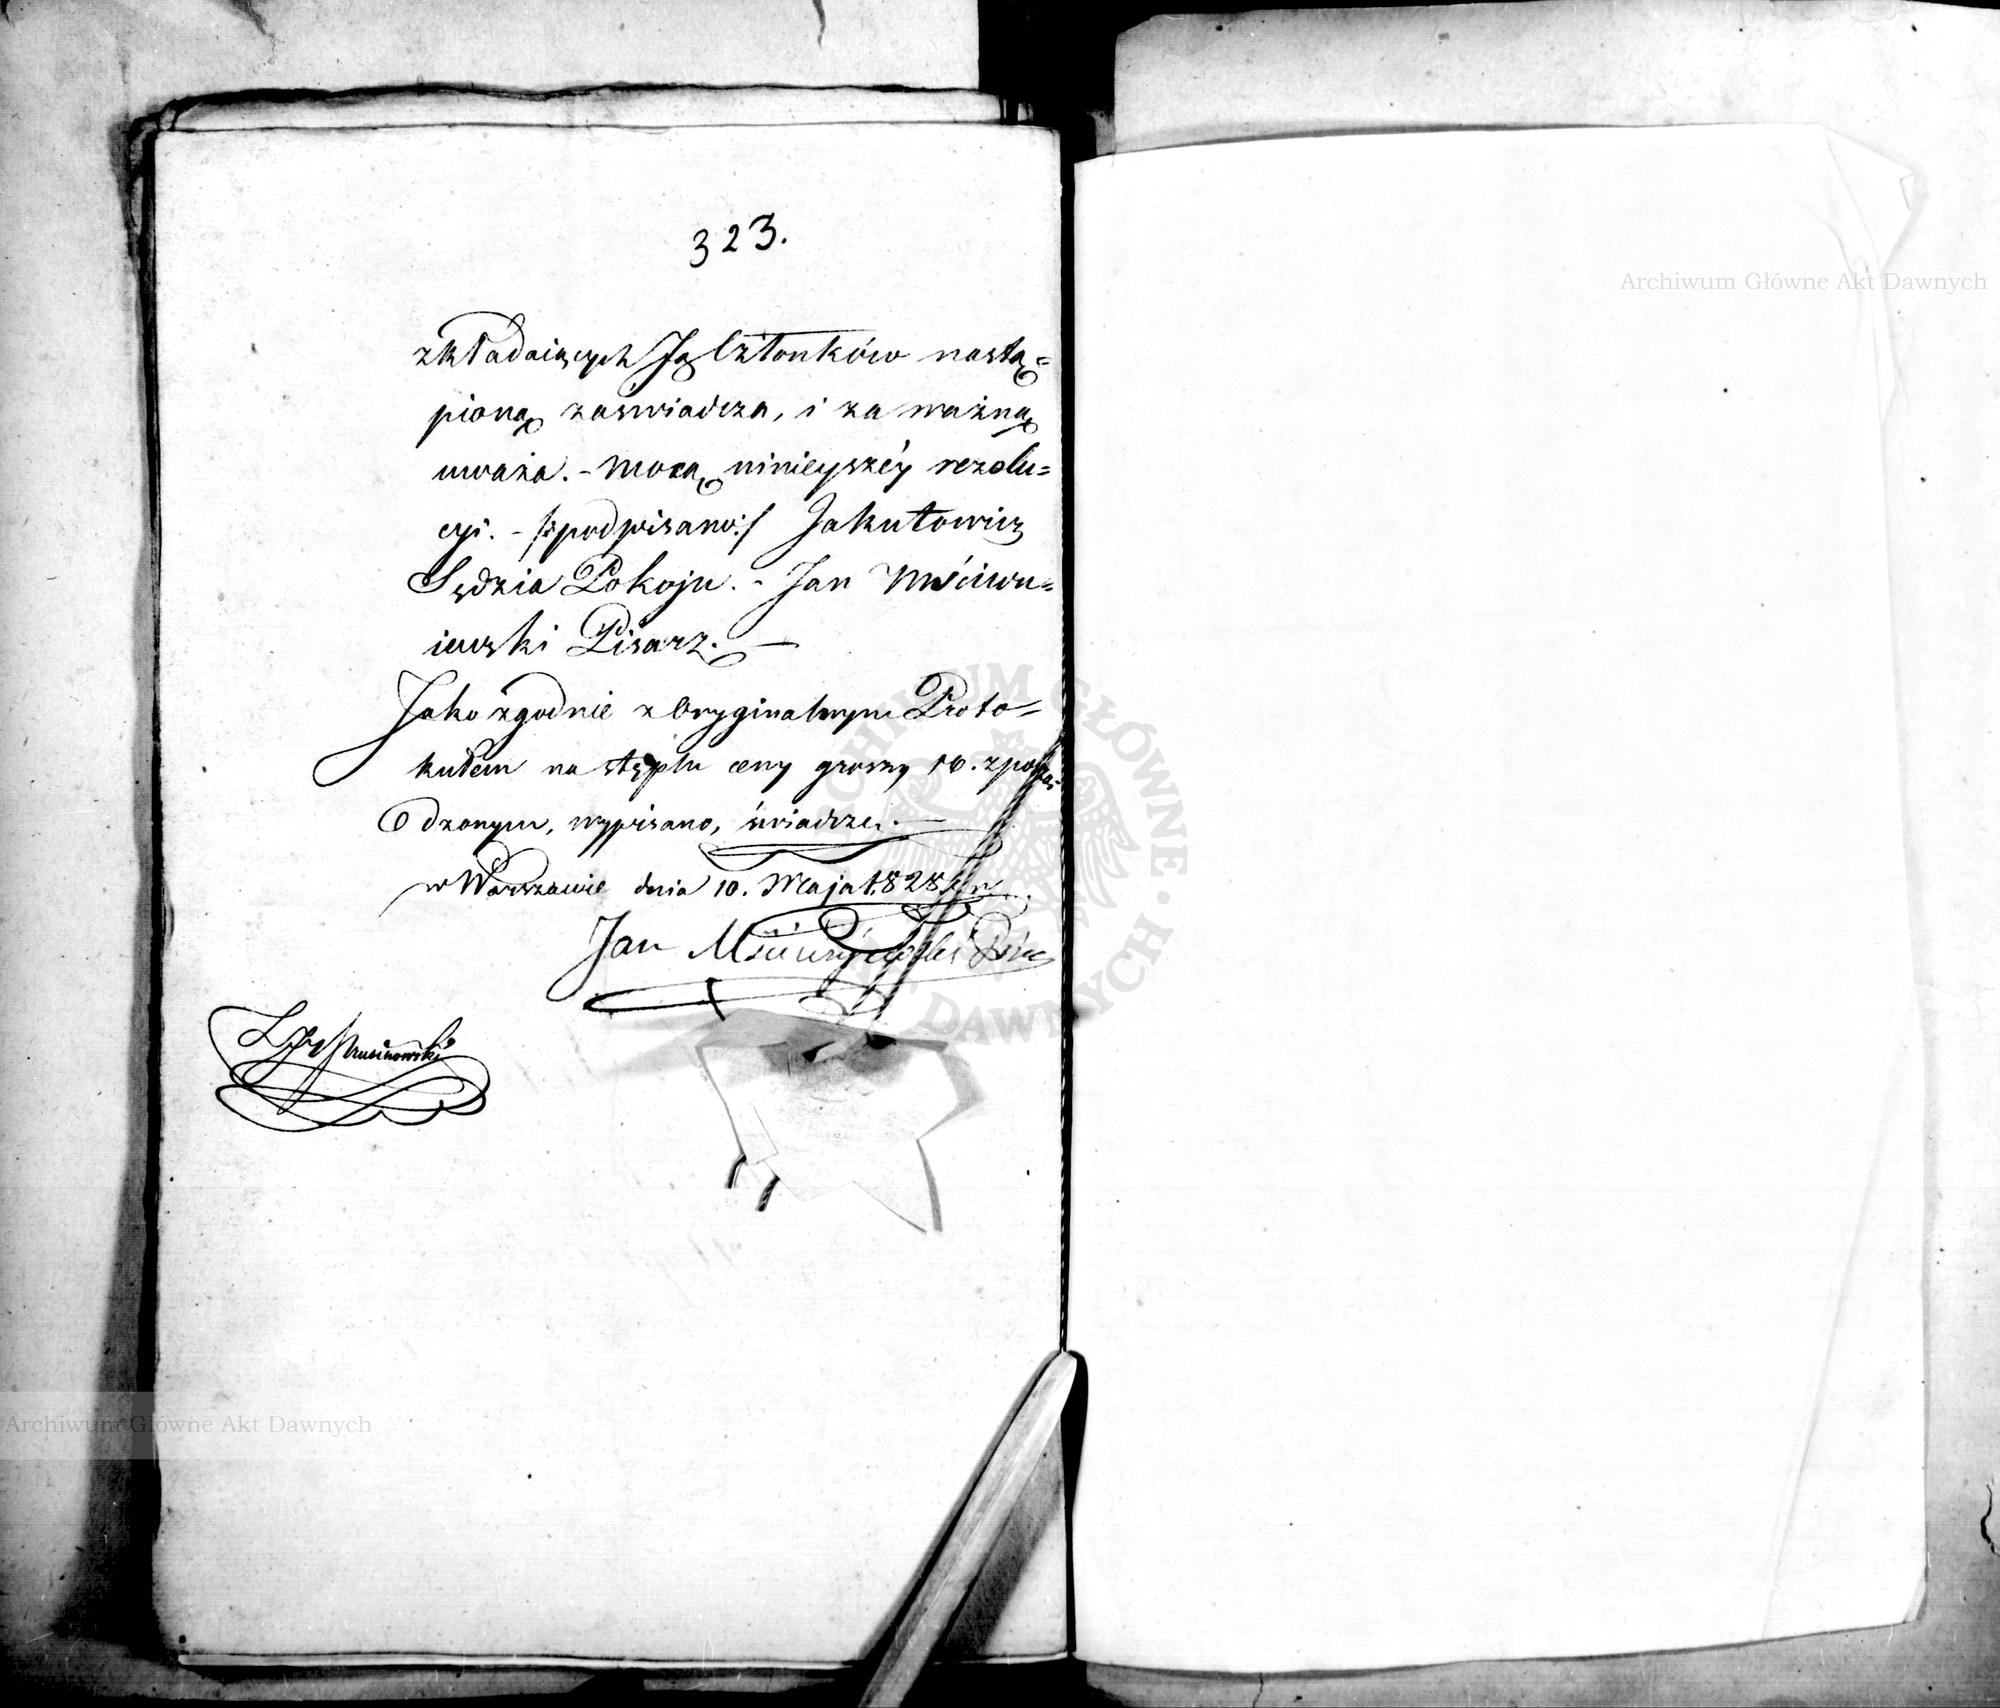 323.
składaiących Ją Członków nastą=
pioną zaświadcza, i za ważną
uważa. - Mocą ninieyszéy rezolu=
cyi. - /:podpisano:/ Jakutowicz
Sędzia Pokoju. - Jan Mściwu=
iewski Pisarz. -
Jako zgodnie z Oryginalnym Proto=
kułem na stęplu ceny groszy 10. sporzą=
dzonym, wypisano, świadczę. -
w Warszawie dnia 10. Maja 1828
Jan
Archiwum Główne Akt Dawnych
Archiwum Główne Akt Dawnych
ARCHIWUM GŁÓWNE AKT DAWNYCH